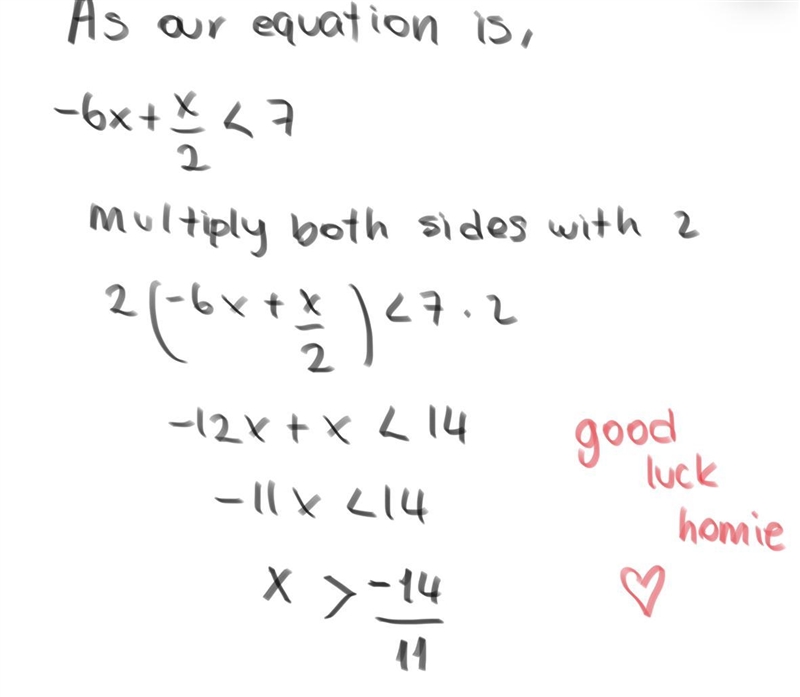 As our equation is,
-6x + x/2 < 7
multiply both sides with 2
2(-6x + x/2) < 7 · 2
-12x + x < 14
-11x < 14
x > -14/11
good
luck
homie
♡